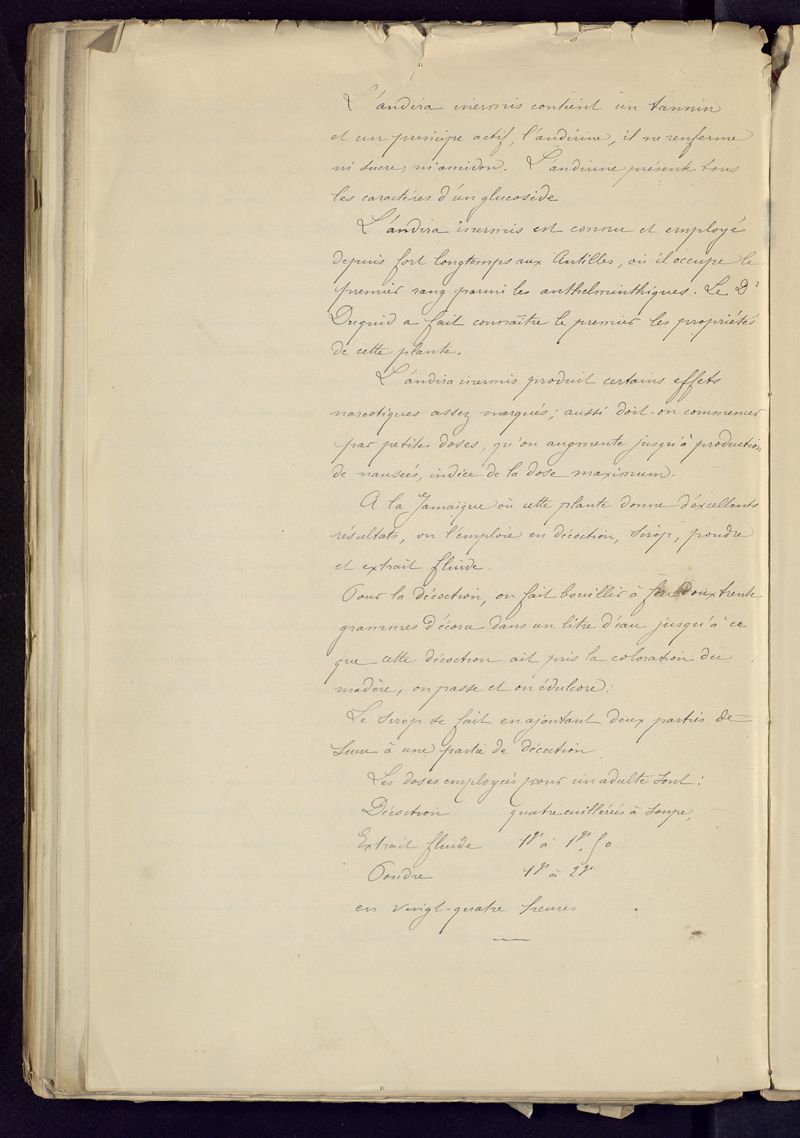 L'andira inermis contient un tannin
et un principe actif, l'andirine, il ne renferme
ni sucre, ni amidon. L'andirine présente tous
les caractères d'un glucoside
L'andira inermis est connu et employé
depuis fort longtemps aux Antilles, où il occupe le
premier rang parmi les anthelminthiques. Le Dr
Duguid a fait connaître le premier les propriétés
de cette plante.
L'andira inermis produit certains effets
narcotiques assez marqués; aussi doit-on commencer
par petites doses, qu'on augmente jusqu'à production
de nausées, indice de la dose maximum.
A la Jamaïque où cette plante donne d'excellents
résultats, on l'emploie en décoction, sirop, poudre
et extrait fluide.
Pour la décoction, on fait bouillir à feu doux trente
grammes d'écorce dans un litre d'eau jusqu'à ce
que cette décoction ait pris la coloration du
madère, on passe et on édulcore:
Le sirop se fait en ajoutant deux parties de
sucre à une partie de décoction
Les doses employées pour un adulte sont:
Décoction quatre cuillérées à soupe,
Extrait fluide 1gr à 1gr.50
Poudre 1gr à 2gr
en vingt-quatre heures